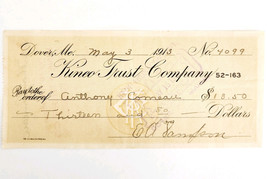 Dover, Me. May 3 1913 No. 4099
Kineo Trust Company 52-163
Pay to the order of Anthony Comeau $13.50
Thirteen Dollars